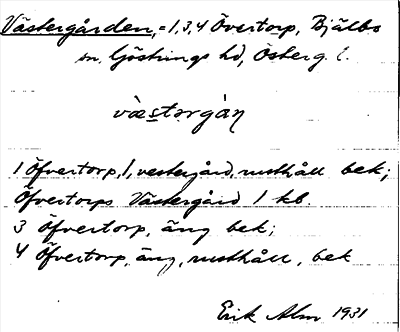 Västergården, = 1, 3, 4 Övertorp, Bjälbo
sn. Göstrings hd, Österg. l.
væstərgàn̥
1 Öfvertorp, 1, vestergård, rusthåll bek;
Öfvertorps Västergård 1 kb.
3 Öfvertorp, äng bek;
4 Öfvertorp, äng, rusthåll, bek
Erik Alm 1931